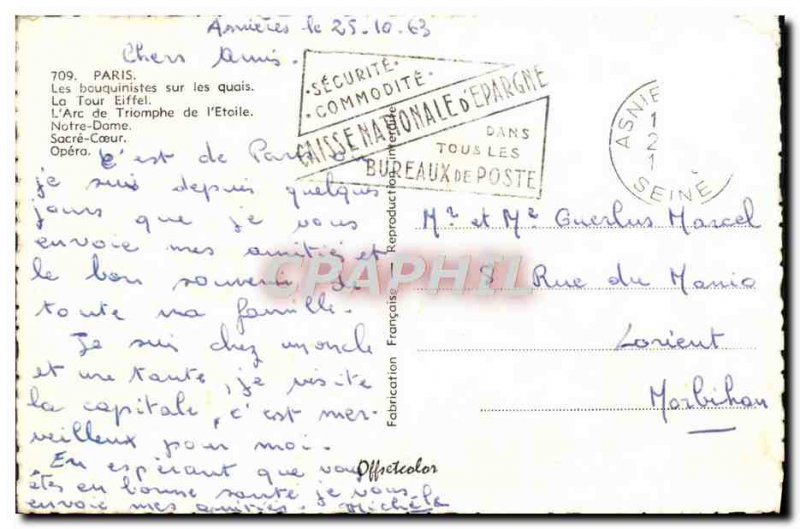 Asnières le 25.10.63
Chers Amis.
709. PARIS.
Les bouquinistes sur les quais.
La Tour Eiffel.
L'Arc de Triomphe de l'Etoile.
Notre-Dame.
Sacré-Cœur.
Opéra.
C'est de Paris ou
je suis depuis quelques
jours que je vous
envoie mes amitiés et
le bon souvenir de
toute ma famille.
Je suis chez un oncle
et une tante, je visite
la capitale, c'est mer-
veilleux pour moi.
En espérant que vous
êtes en bonne santé je vous
envoie mes amitiés. Michèle
·SÉCURITÉ·
·COMMODITÉ·
CAISSE NATIONALE D'ÉPARGNE
DANS
TOUS LES
BUREAUX DE POSTE
ASNIE
1
2
1
SEINE
Fabrication Française - Reproduction interdite
Offsetcolor
Mr et Me Guerlus Marcel
8 Rue du Manio
Lorient
Morbihan
CPAPHIL